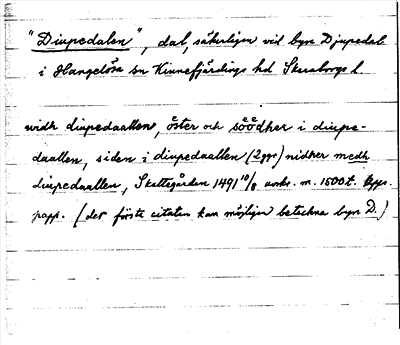 "Diupedalen", dal, säkerligen vid byn Djupedal
i Hangelösa sn Kinnefjärdings hd Skaraborgs l.
widh diupedaallen, öster och söödher i diupe-
daallen, siden i diupedaallen (2 ggr) nidher medh
diupedaallen, Skattegården 1491 10/8 avskr. m. 1500t. Upps.
papp. (det förste citaten kan möjligen beteckna byn D.)